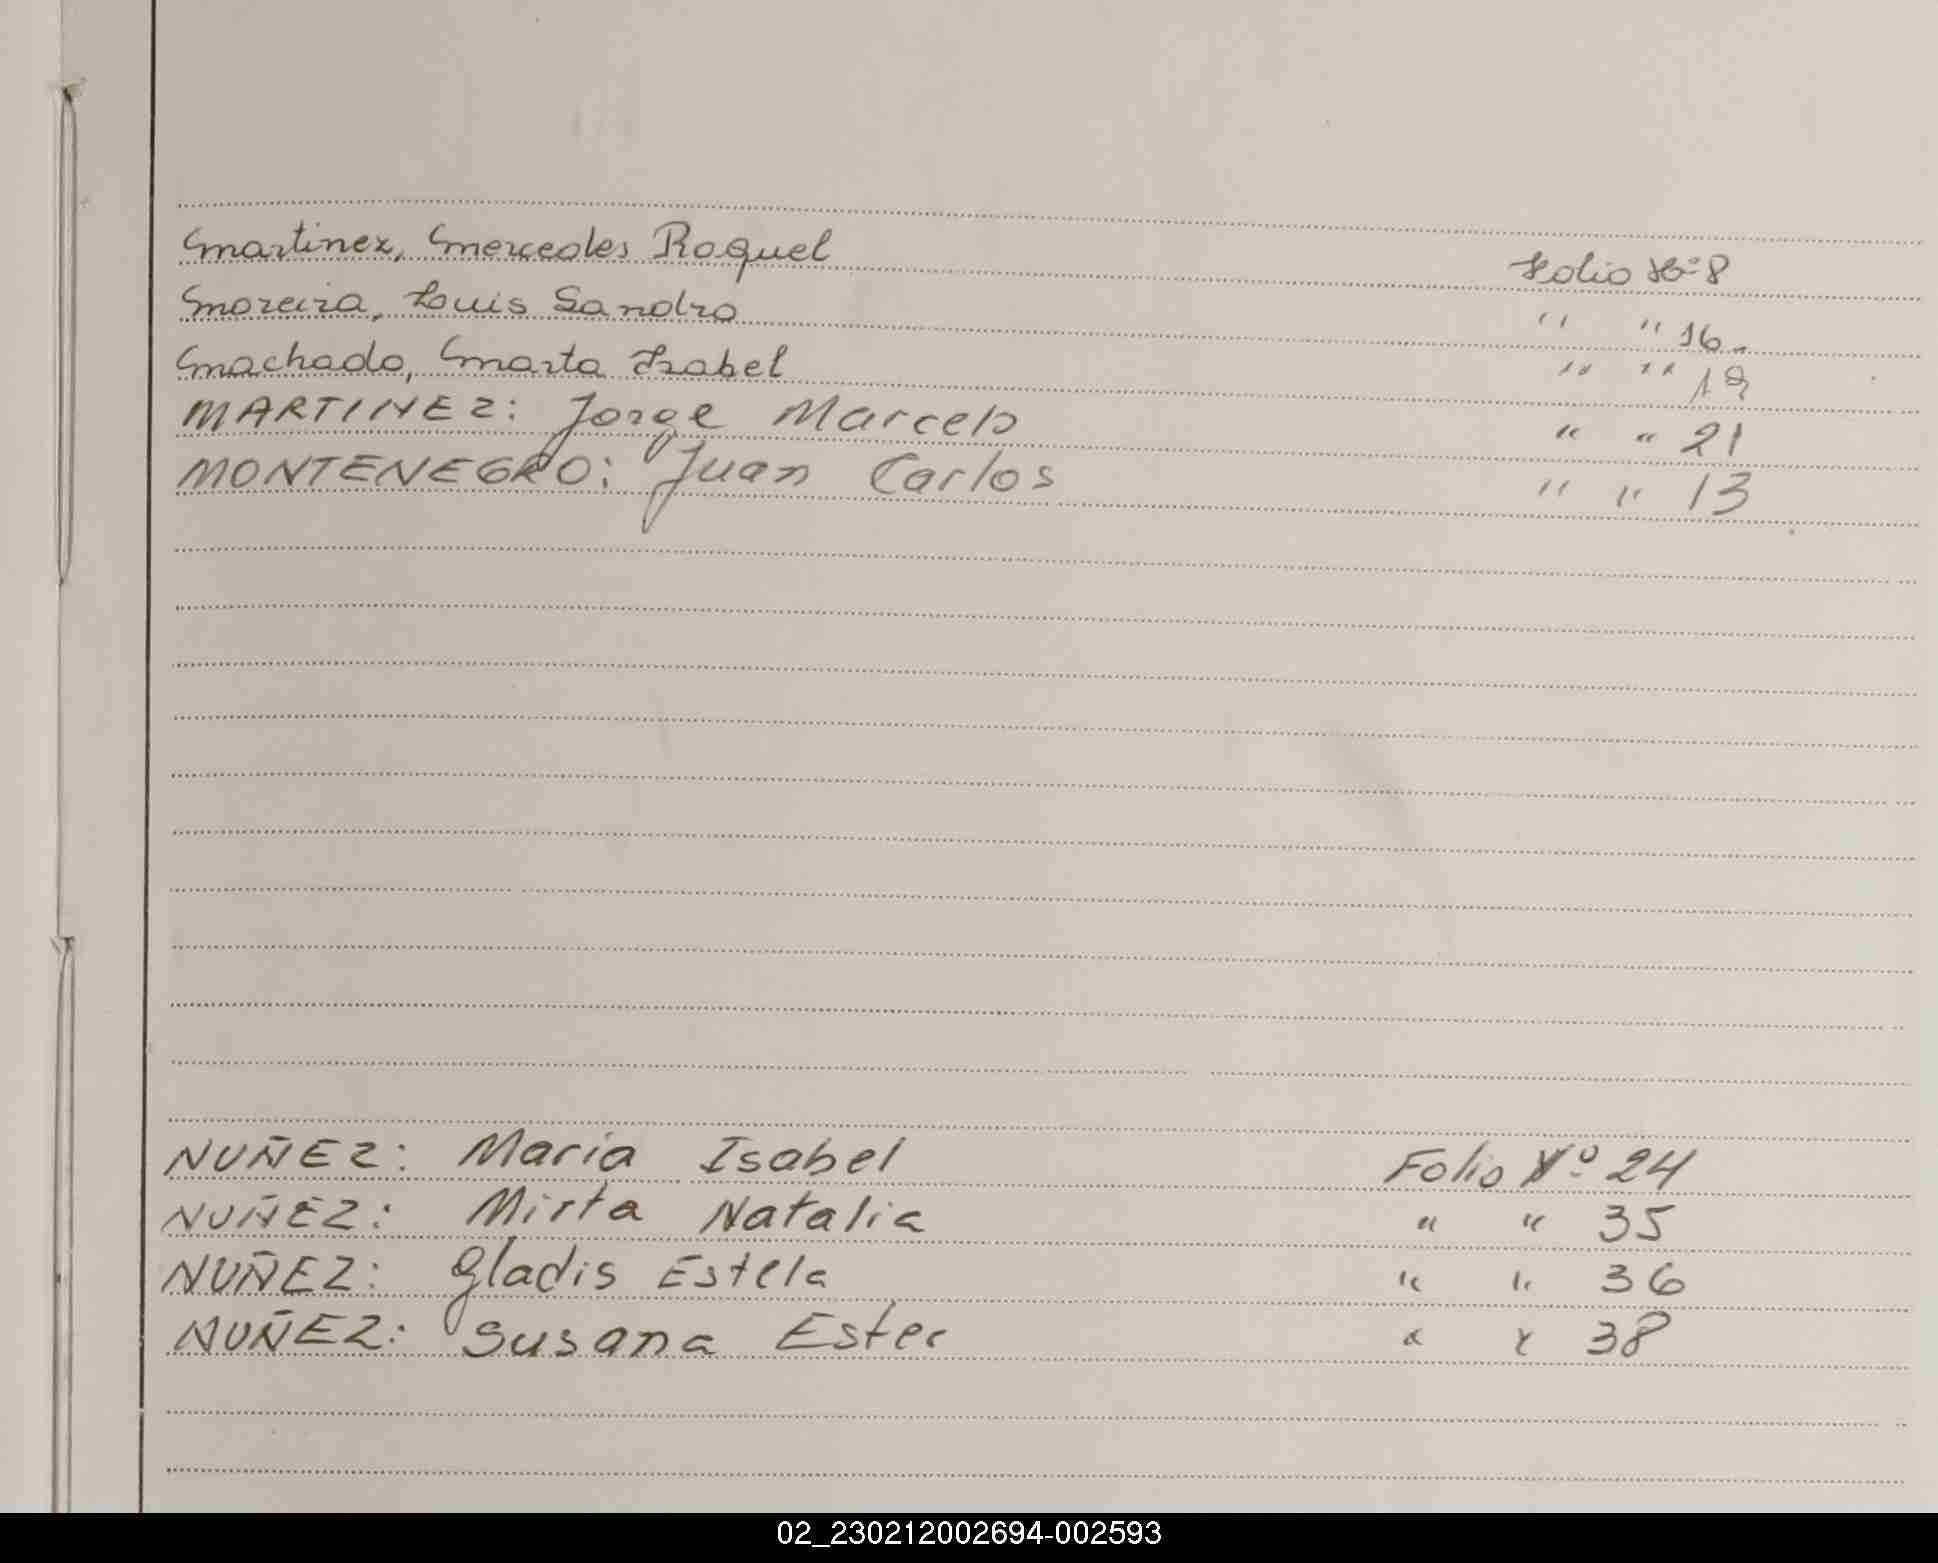 Martinez, Mercedes Raquel Folio Nº 8
Moreira, Luis Sandro " " 16.
Machado, Marta Isabel " " 19
MARTINEZ: Jorge Marcelo " " 21
MONTENEGRO: Juan Carlos " " 13
NUÑEZ: Maria Isabel Folio Nº 24
NUÑEZ: Mirta Natalia " " 35
NUÑEZ: Gladis Estela " " 36
NUÑEZ: Susana Ester " " 38
02_230212002694-002593